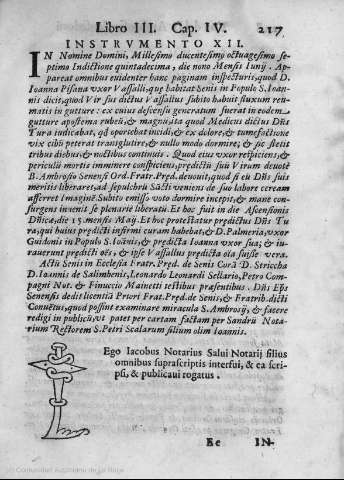 Libro III. Cap. IV. 217
INSTRVMENTO XII.
IN Nomine Domini, Millesimo ducentesimo octuagesimo se-
ptimo Indictione quintadecima, die nono Mensis Iunij. Ap-
pareat omnibus euidenter hanc paginam inspecturis, quod D.
Ioanna Pisana vxor Vassalli, que habitat Senis in Populo S. Ioan-
nis dicit, quod Vir sus dictus Vassallus subito habuit fluxum reu-
matis in gutture. ex cuius descensu generatum fuerat in eodem
gutture apostema rubeũ, & magnũ, ita quod Medicus dictus Dñs
Tura iudicabat, qđ oporcebat incidi, & ex dolore, & tumefactione
vix cibũ peterat transglutire, & nullo modo dormire; & sic stetit
tribus diebus, & noctibus continuis. Quod eius vxor respiciens, &
periculũ mortis imminere conspiciens, predictũ suũ Virum deuotè
B. Ambrosio Senensi Ord. Fratr. Pręd. deuouit, quod si eũ Dñs suis
meritis liberaret, ad sepulchrũ Sãcti veniens de suo labore ceream
afferret Imaginẽ. Subito emisso voto dormire incepit, & mane con-
surgens inuenit se plenariè liberatũ. Et hoc fuit in die Ascensionis
Dñicæ, die 15. mensis Maij. Et hoc protestatur predictus Dñs Tu-
ra, qui huius predicti infirmi curam habebat, & D. Palmeria, vxor
Guidonis in Populo S. Ioãnis, & predicta Ioanna vxor sua; & iu-
rauerunt predicti oẽs, & ipse Vassallus predicta oĩa fuisse vera.
Actũ Senis in Ecclesia Fratr. Pręd. de Senis Corã D. Striccha
D. Ioannis de Salimbenis, Leonardo Leonardi Sellario, Petro Com-
pagni Not. & Finuccio Mainetti testibus præsentibus. Dñs Eps̃
Senensis dedit licentiã Priori Frat. Pręd. de Senis, & Fratrib. dicti
Conuẽtus, quod possint examinare miracula S. Ambrosij, & facere
redigi in publicũ, vt patet per certam factam per Sandrũ Nota-
rium Rectorem S. Petri Scalarum filium olim Ioannis.
Ego Iacobus Notarius Salui Notarij filius
omnibus suprascriptis interfui, & ea scri-
psi, & publicaui rogatus.
Ee IN-
(c) Comunidad Autónoma de La Rioja